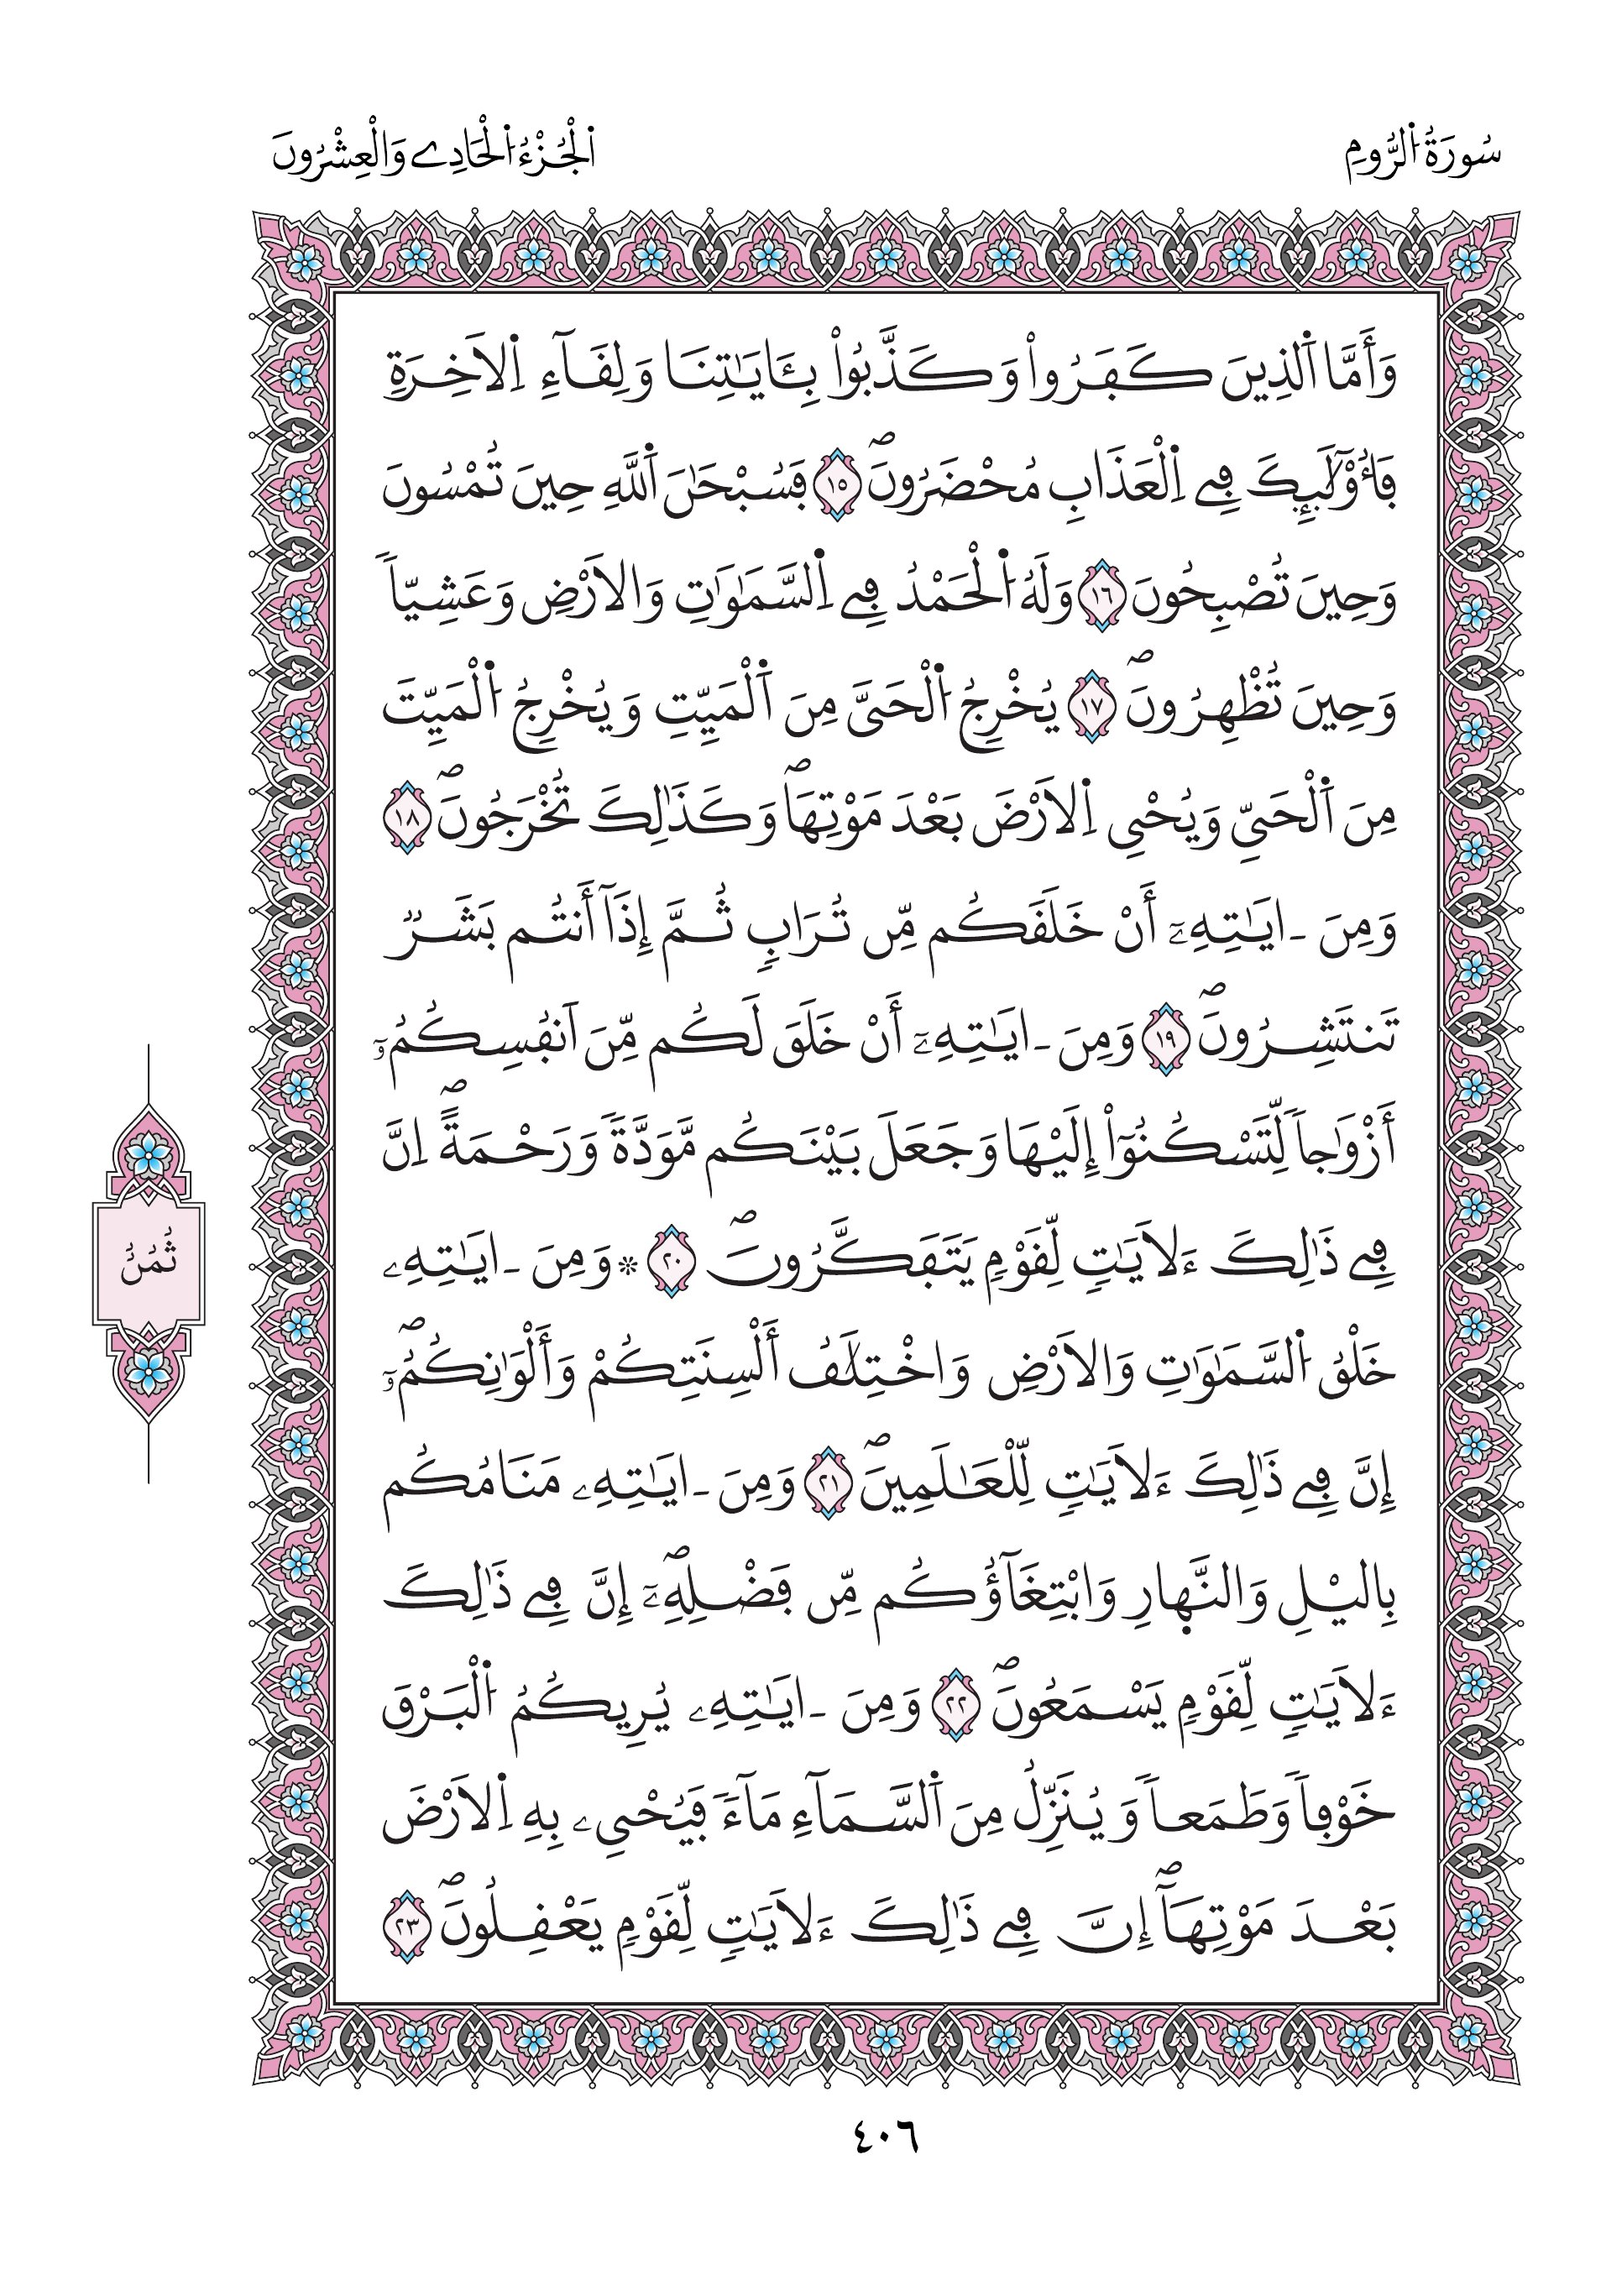 سُورَةُ اُ۬لرُّومِ
اُ۬لْجُزْءُ اُ۬لْحَادِے وَالْعِشْرُونَ
وَأَمَّا اَ۬لذِينَ كَفَرُواْ وَكَذَّبُواْ بِـَٔايَٰتِنَا وَلِقَآءِ اِ۬لَاخِرَةِ
فَأُوْلَٰٓئِكَ فِے اِ۬لْعَذَابِ مُحْضَرُونَۖ ١٥ فَسُبْحَٰنَ اَ۬للَّهِ حِينَ تُمْسُونَ
وَحِينَ تُصْبِحُونَ ١٦ وَلَهُ اُ۬لْحَمْدُ فِے اِ۬لسَّمَٰوَٰتِ وَالَارْضِ وَعَشِيّاٗ
وَحِينَ تُظْهِرُونَۖ ١٧ يُخْرِجُ اُ۬لْحَيَّ مِنَ اَ۬لْمَيِّتِ وَيُخْرِجُ اُ۬لْمَيِّتَ
مِنَ اَ۬لْحَيِّ وَيُحْيِ اِ۬لَارْضَ بَعْدَ مَوْتِهَاۖ وَكَذَٰلِكَ تُخْرَجُونَۖ ١٨
وَمِنَ ـ ايَٰتِهِۦٓ أَنْ خَلَقَكُم مِّن تُرَابٖ ثُمَّ إِذَآ أَنتُم بَشَرٞ
تَنتَشِرُونَۖ ١٩ وَمِنَ ـ ايَٰتِهِۦٓ أَنْ خَلَقَ لَكُم مِّنَ اَنفُسِكُمُۥٓ
أَزْوَٰجاٗ لِّتَسْكُنُوٓاْ إِلَيْهَا وَجَعَلَ بَيْنَكُم مَّوَدَّةٗ وَرَحْمَةًۖ اِنَّ
فِے ذَٰلِكَ ءَلَايَٰتٖ لِّقَوْمٖ يَتَفَكَّرُونَۖ ٢٠ ۞ وَمِنَ ـ ايَٰتِهِۦ
خَلْقُ اُ۬لسَّمَٰوَٰتِ وَالَارْضِ وَاخْتِلَٰفُ أَلْسِنَتِكُمْ وَأَلْوَٰنِكُمُۥٓۖ
إِنَّ فِے ذَٰلِكَ ءَلَايَٰتٖ لِّلْعَٰلَمِينَۖ ٢١ وَمِنَ ـ ايَٰتِهِۦ مَنَامُكُم
بِاليْلِ وَالنَّهارِ وَابْتِغَآؤُكُم مِّن فَضْلِهِۦٓۖ إِنَّ فِے ذَٰلِكَ
ءَلَايَٰتٖ لِّقَوْمٖ يَسْمَعُونَۖ ٢٢ وَمِنَ ـ ايَٰتِهِۦ يُرِيكُمُ اُ۬لْبَرْقَ
خَوْفاٗ وَطَمَعاٗ وَيُنَزِّلُ مِنَ اَ۬لسَّمَآءِ مَآءٗ فَيُحْيِۦ بِهِ اِ۬لَارْضَ
بَعْدَ مَوْتِهَآۖ إِنَّ فِے ذَٰلِكَ ءَلَايَٰتٖ لِّقَوْمٖ يَعْقِلُونَۖ ٢٣
ثُمُنُ
٤٠٦